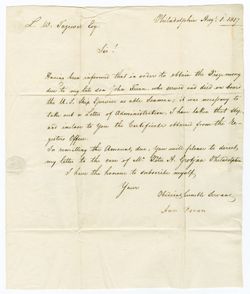 L. W. Tazewell Esq. Philadelphia Augt. 1. 1827
Sir!
Having been informed that in order to obtain the Wages money
due to my late son John Doran, who served and died on board
the U.S. Ship as able Seaman; it was necessary to
take out a Letter of Administration, I have taken that step
and enclose to You the Certificate obtained from the Re-
gisters Office.
In remitting the Amount, due, You will please to direct
my letter to the care of Mr. Peter A. Grotjan Philadelphia
I have the honour to subscribe myself,
Your
Obedient humble Servant
Ann Doran